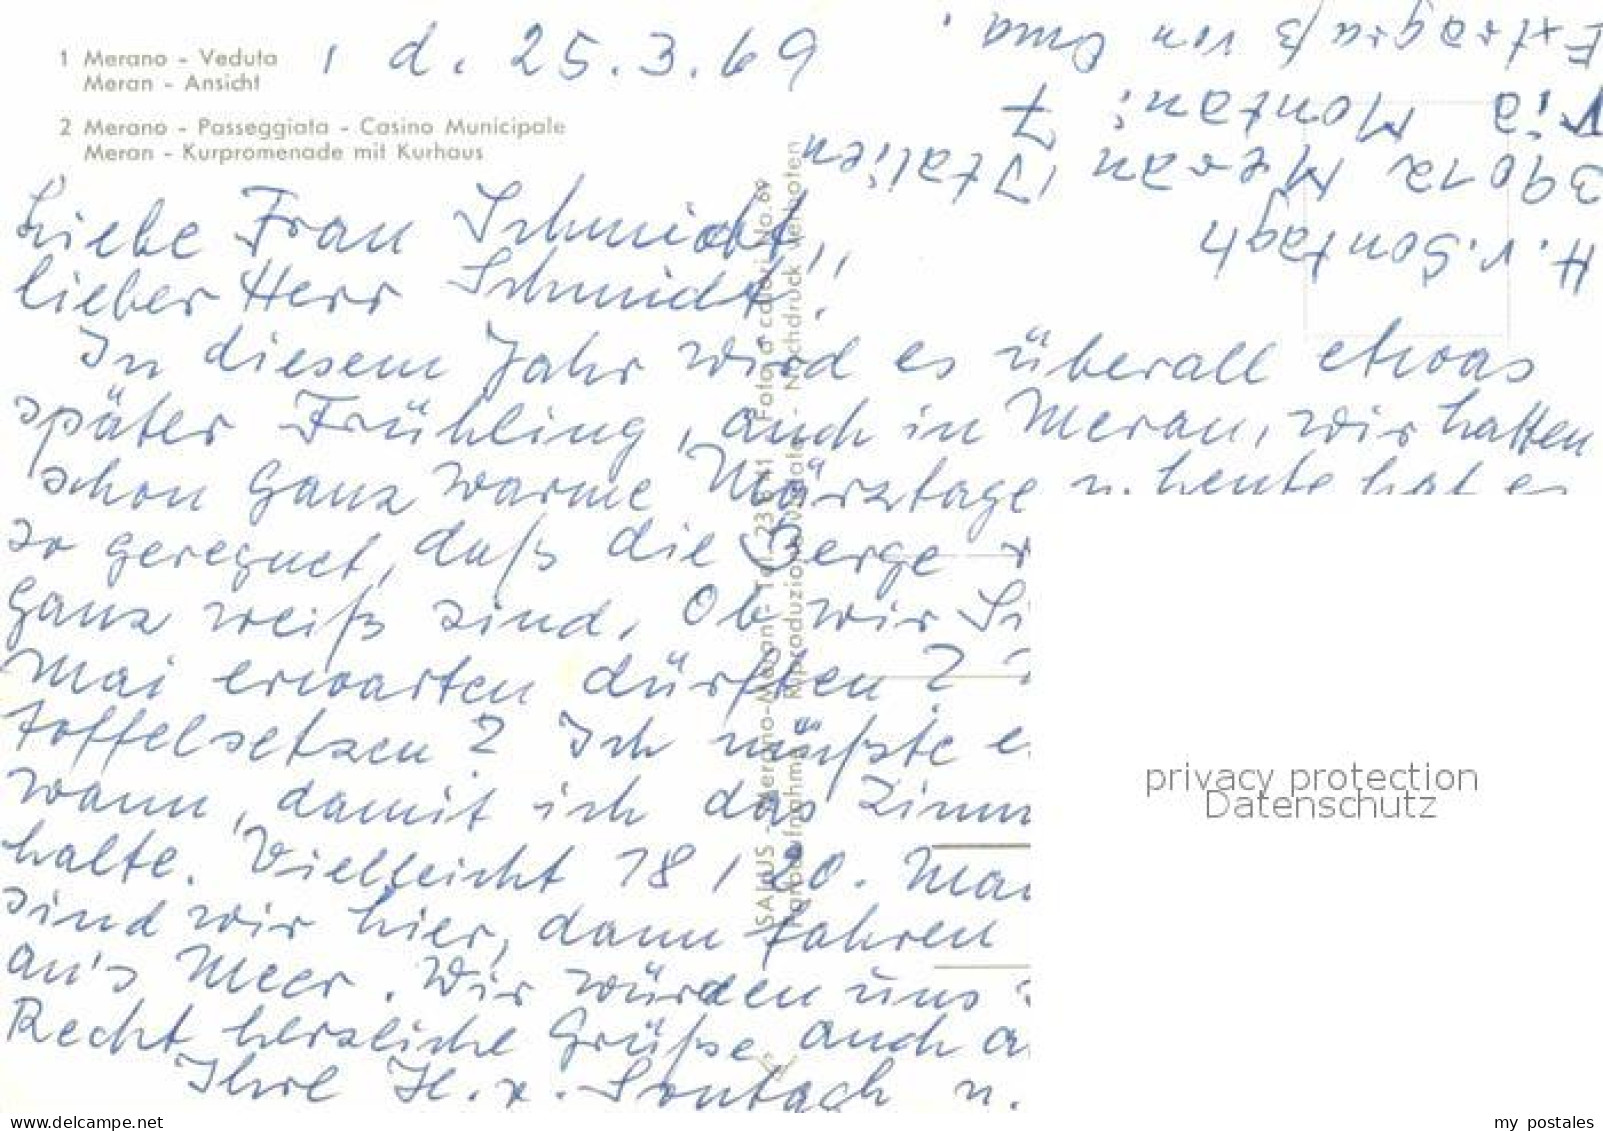 1 Merano - Veduta
Meran - Ansicht
2 Merano - Passeggiata - Casino Municipale
Meran - Kurpromenade mit Kurhaus
, d. 25.3.69
Liebe Frau Schmidt,
lieber Herr Schmidt!
In diesem Jahr wird es überall etwas
später Frühling, auch in Meran, wir hatten
schon ganz warme Märztage u. heute hat es
so geregnet, daß die Berge
ganz weiß sind. Ob wir Si
Mai erwarten dürften?
toffelsetzen? Ich müßte e
wann, damit ich das Zimm
halte. Vielleicht 18/20. Mai
sind wir hier, dann fahren
an's Meer. Wir würden uns
Recht herzliche Grüße, auch a
Ihre H. v. Sontagh u.
H. v. Sontagh
39012 Meran Italien
Via Montani 7
Extragruß von Oma.
Foto a colori No. 69
Riproduzione vietata - Nachdruck verboten
privacy protection
Datenschutz
my postales
www.delcampe.net